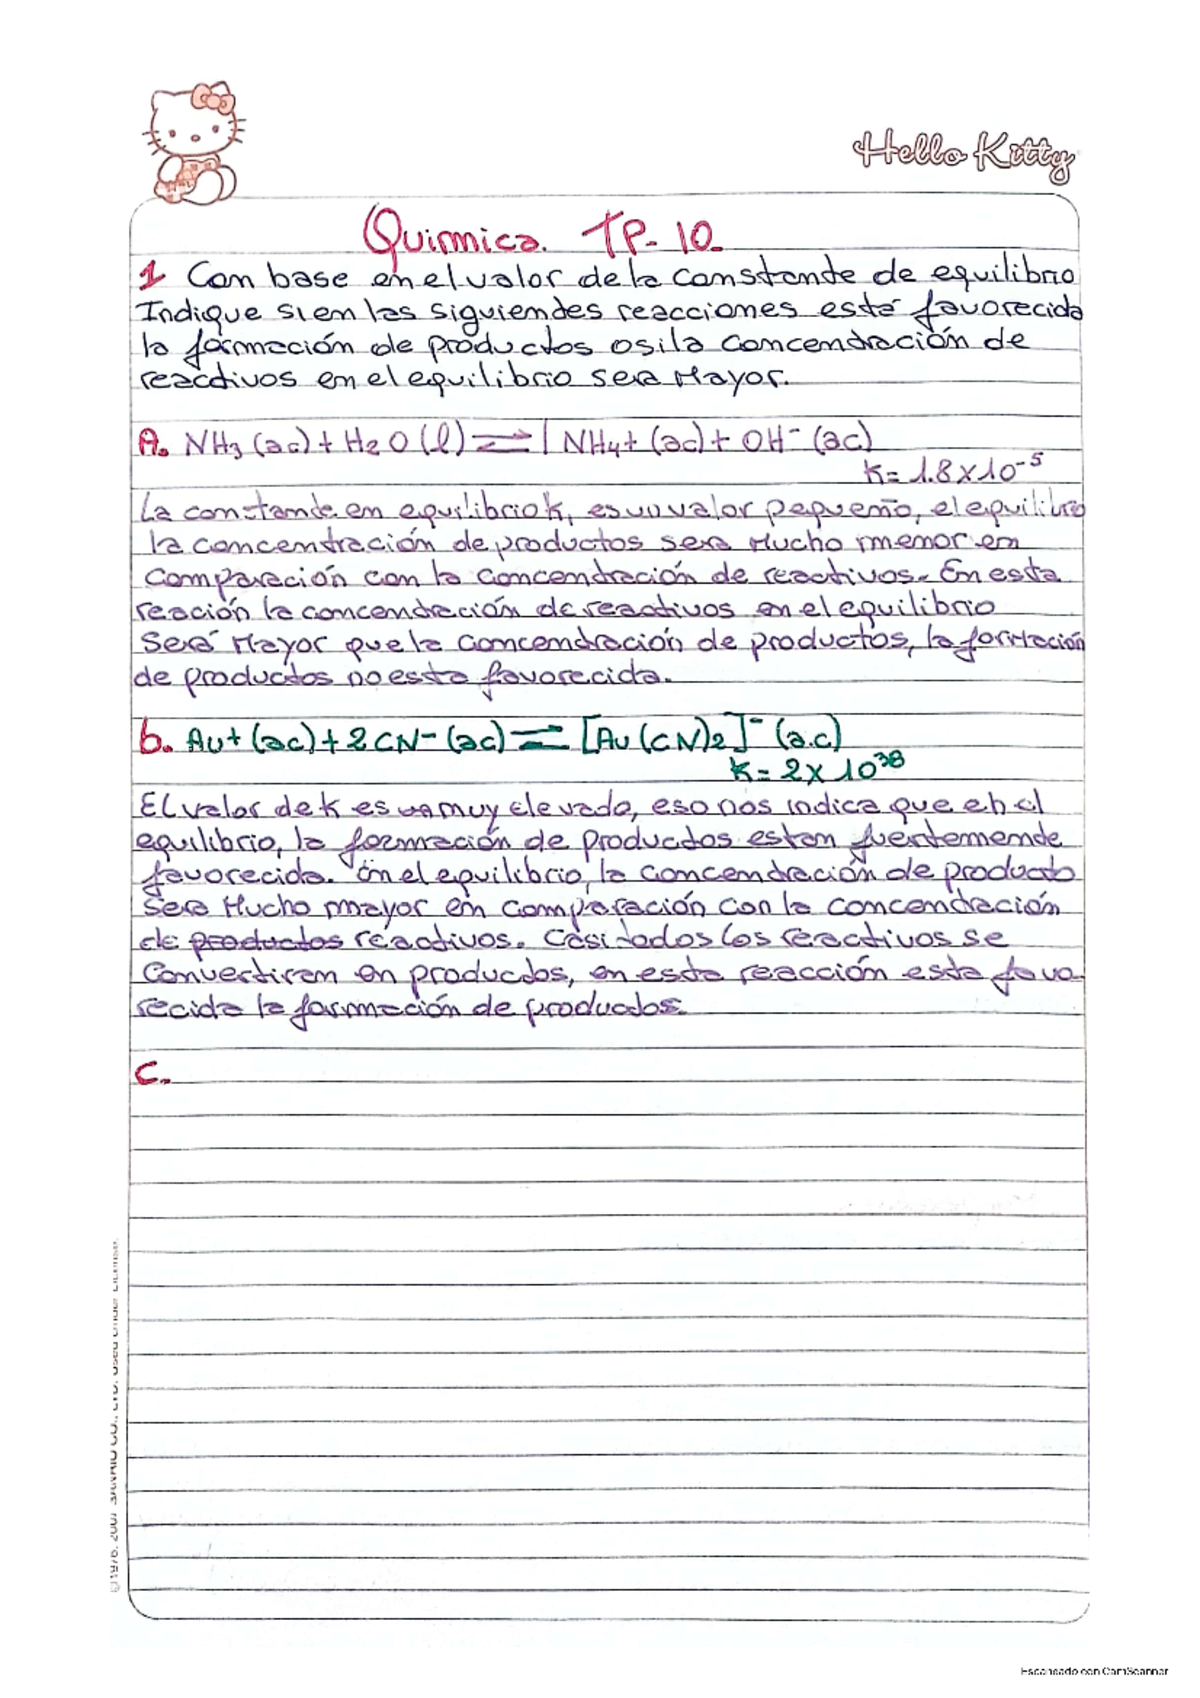 Hello Kitty
Quimica. TP-10.
1 Con base en el valor de la constante de equilibrio
Indique si en las siguientes reacciones está favorecida
la formación de productos o si la concentración de
reactivos en el equilibrio sera Mayor.
A. NH3 (ac) + H2O (l) ⇌ | NH4+ (ac) + OH- (ac)
K= 1.8x10-5
La constante en equilibrio k, es un valor pequeño, el equilibrio
la concentración de productos sera Mucho menor en
Comparación con la concentración de reactivos. En esta
reación la concentración de reactivos en el equilibrio
Será Mayor que la concentración de productos, la formación
de productos no esta favorecida.
b. Au+ (ac) + 2CN- (ac) ⇌ [Au(CN)2]- (a.c)
K= 2x10³⁸
El valor de k es un muy elevado, eso nos indica que en el
equilibrio, la formación de productos estan fuertemente
favorecida. En el equilibrio, la concentración de producto
Sera Mucho mayor en comparación con la concentración
de productos reactivos. Casi todos los reactivos se
Convertiran en productos, en esta reacción esta favo-
recida la formación de productos.
C.
©1976, 2007 SANRIO CO., LTD. Used Under License.
Escaneado con CamScanner